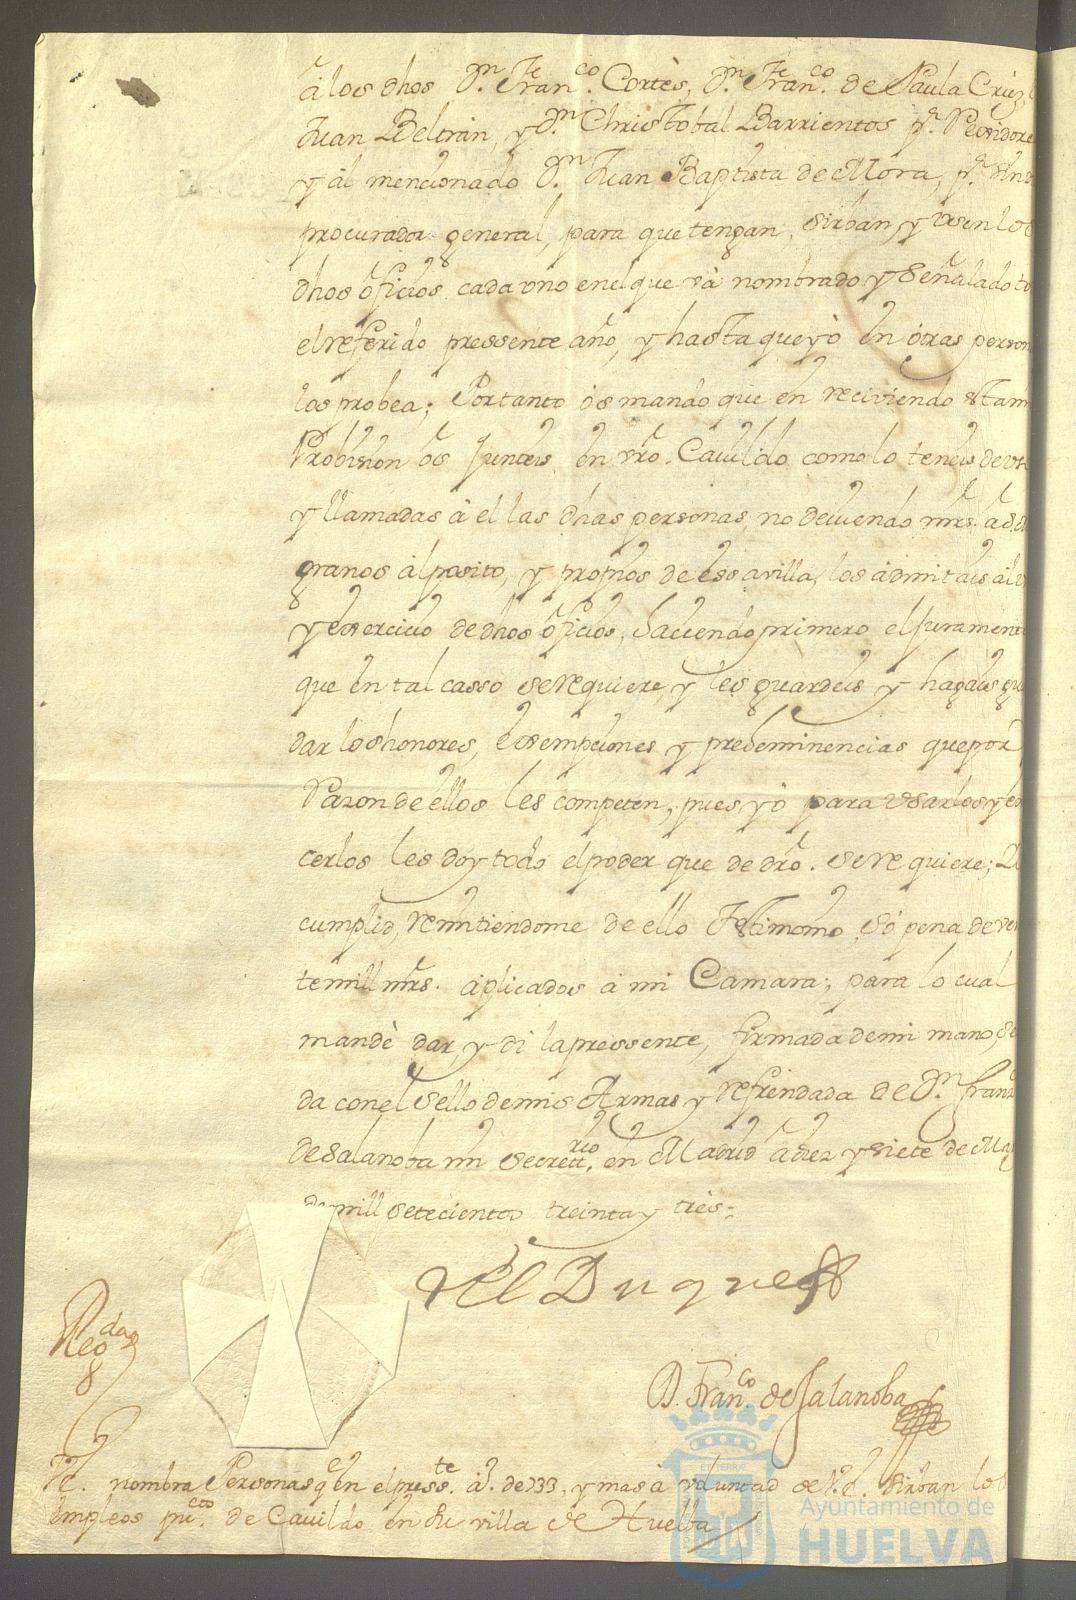 à los dhos Dn. Franco. Cortès, Dn. Franco. de Paula Crúz,
Juan Beltràn, y Dn. Christobal Barrientos pa. Rexidore
y àl mencionado Dn. Juan Baptista de Mora, pa.
procurador general, para que tengan, sirban, y vsen los
dhos òficios cada vno en el que và nombrado y señalado to
el referido pressente año, y hasta que yò en òtras person
los probea; Por tanto òs mando que en reciviendo esta mi
Probision òs junteis en vro. Cavildo como lo teneis de vs
y llamadas à el las dhas personas, no deviendo mrs.
granos àl posito, y propios de essa villa, los àdmitais àl v
y exsercicio de dhos òficios, haciendo primero el juramento
que en tal casso se requiere, y les guardeis y hagais gu
dar los honores, exsempciones y preheminencias que por
Razon de ellos les competen, pues yò para vsarlos y ex
cerlos les doy todo el poder que de dro. se requiere;
cumplid, remitiendome de ello Testimonio, só pena de ve
te mill mrs. àplicados à mi Camara; para lo cual
mandè dar, y di la pressente, firmada de mi mano, se
da con el sello de mis Armas y refrendada de Dn. Franco
de Salanoba mi Secrettrio. en Madrid à diez y siete de Ma
de mill setecientos treinta y tres:
El Duque
Regda
8
D. Franco. de Salanoba
V.E. nombra Personas qe en el presste. àº. de 733, y mas à voluntad de V.E. sirban los
empleos pucos. de Cavildo en su villa de Huelba
Ayuntamiento de
HUELVA